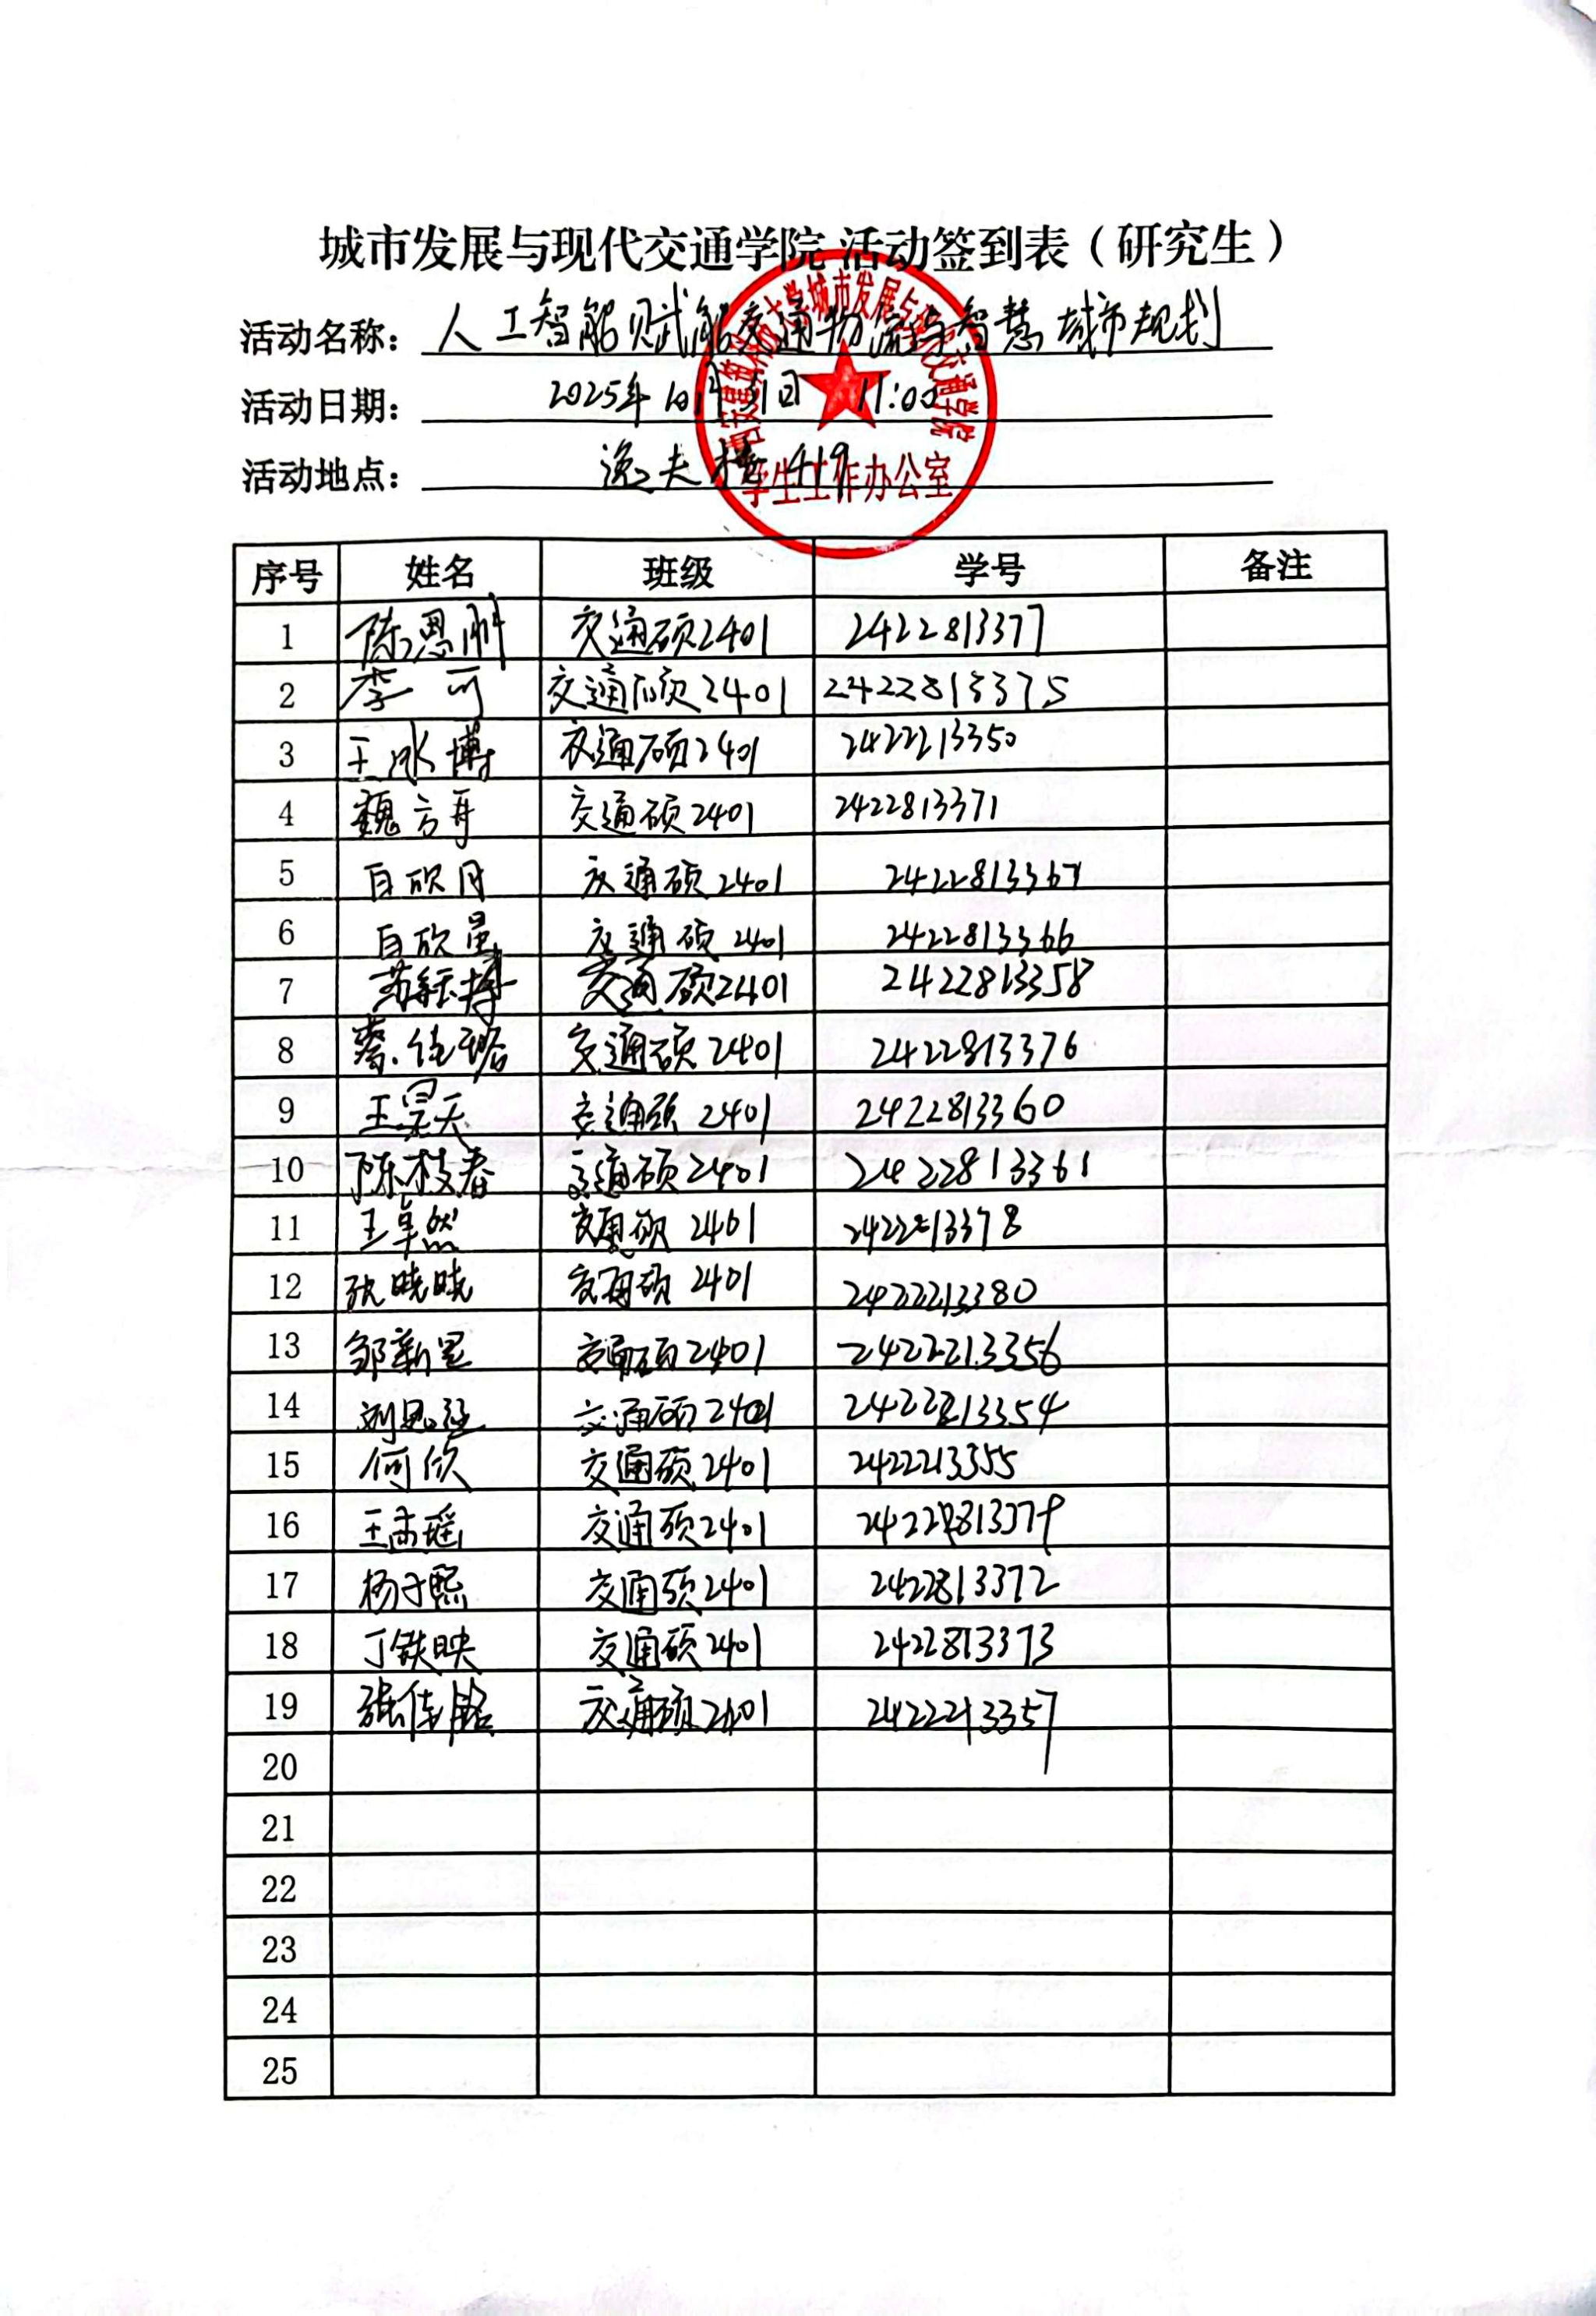 城市发展与现代交通学院 活动签到表（研究生）
活动名称： 人工智能赋能交通物流与智慧城市规划
活动日期： 2025年10月31日 11:00
活动地点： 逸夫楼 419
西安建筑科技大学城市发展与现代交通学院
学生工作办公室
序号 姓名 班级 学号 备注
1 陈恩刚 交通硕2401 2422813377
2 李可 交通硕2401 2422813375
3 王冰博 交通硕2401 2422213350
4 魏方哥 交通硕2401 2422813371
5 白欣月 交通硕2401 2422813367
6 白欣 交通硕2401 2422813366
7 苏钰博 交通硕2401 2422813358
8 佳 交通硕2401 2422813376
9 王昊天 交通硕2401 2422813360
10 陈枝春 交通硕2401 2422813361
11 王卓然 交通硕2401 2422213378
12 张晓晓 交通硕2401 2422213380
13 邹新星 交通硕2401 2422213356
14 刘思 交通硕2401 2422213354
15 何欣 交通硕2401 2422213355
16 王 瑶 交通硕2401 2422813379
17 杨子熙 交通硕2401 2422813372
18 丁铁映 交通硕2401 2422813373
19 张佳铭 交通硕2401 2422213357
20
21
22
23
24
25